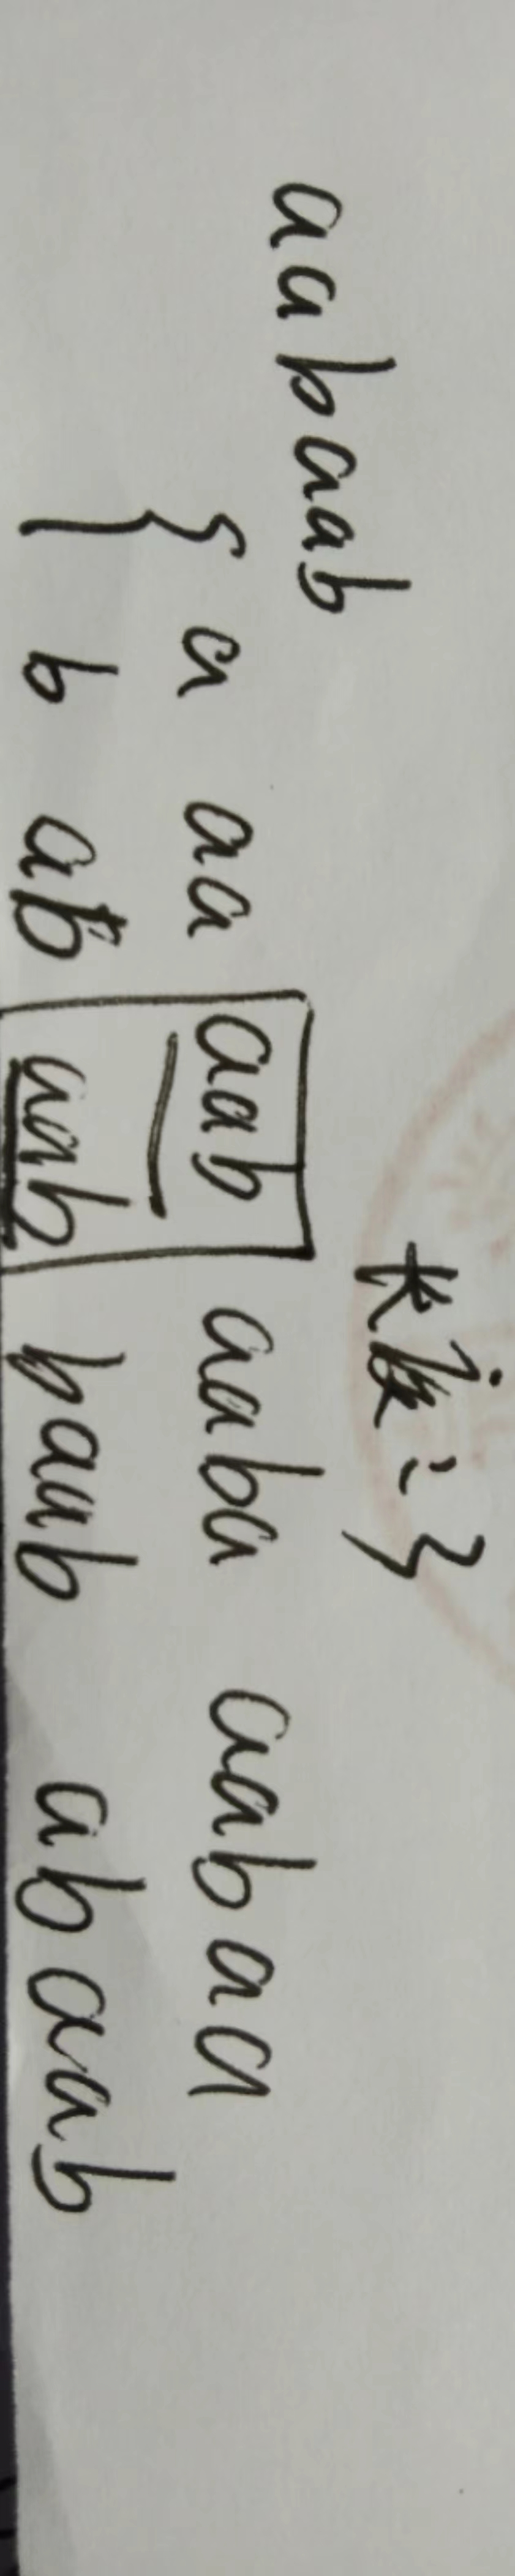 aabaab
长度:3
{ a aa aab aaba aabaa
b ab aab baab abaab